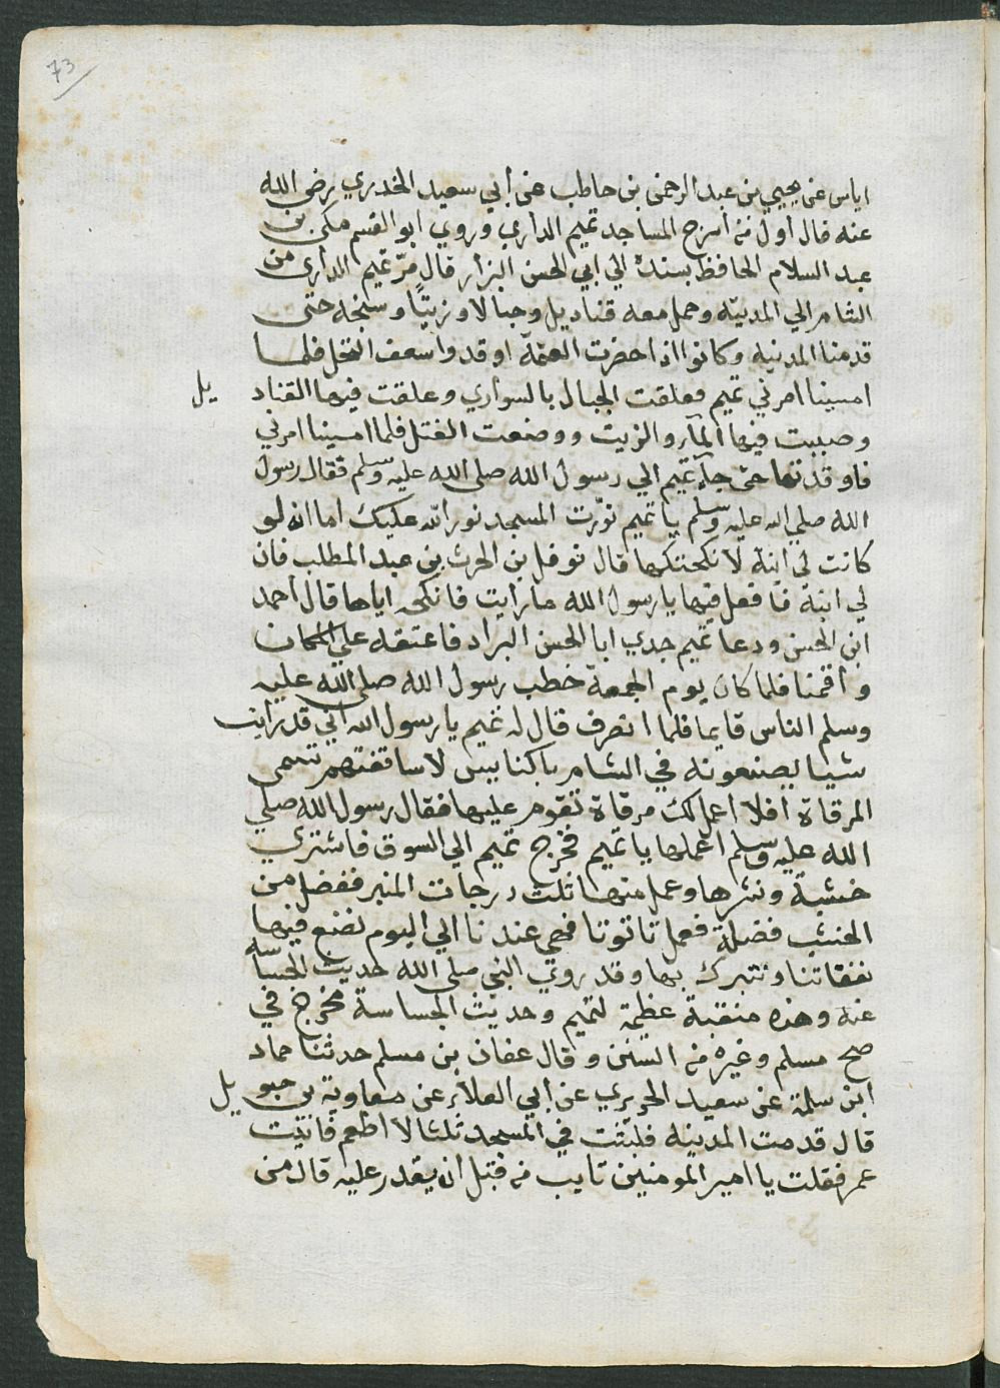 73
اياس عن يحيي بن عبد الرحمن بن حاطب عن أبي سعيد الخدري رضي الله
عنه قال أول من أسرج المساجد تميم الداري وروي ابو القسم مكي بن
عبد السلام الحافظ بسنده الي ابي الحسن البزار قال مرّ تميم الداري من
الشام الي المدينه وحمل معه قناديل وحبالا وزيتًا وسنجه حتى
قدمنا المدينه وكانوا اذا حضرت العتمة اوقدوا سعف النخل فلما
امسينا امرني تميم فعلقت الحبال بالسواري وعلقت فيها القناديل
وصببت فيها المآء والزيت ووضعت الفتل فلما امسينا امرني
فاوقدتها حتى جآء تميم الي رسول الله صلى الله عليه وسلم فقال رسول
الله صلي الله عليه وسلم يا تميم نوّرت المسجد نور الله عليك اما انه لو
كانت لي ابنة لانكحتكها قال نوفل بن الحرث بن عبد المطلب فان
لي ابنة فافعل فيها يا رسول الله ما رأيت فانكحه اياها قال أحمد
ابن الحسن ودعا تميم جدي ابا الحسن البراد فاعتقه علي المكان
وأقمنا فلما كان يوم الجمعة خطب رسول الله صلى الله عليه
وسلم الناس قايما فلما انصرف قال له تميم يا رسول الله اني قد رايت
شيا يصنعونه في الشام بكنايس لاساقفتهم تسمى
المرقاة أفلا اعمل لك مرقاة تقوم عليها فقال رسول الله صلي
الله عليه وسلم اعملها يا تميم فخرج تميم الي السوق فاشتري
خشبة ونشرها وعمل منها ثلث درجات المنبر ففضل من
الخشب فضلة فعمل تاتوتا فهي عندنا الي اليوم نضع فيها
نفقاتنا ونتبرك بها وقد روي النبي صلى الله حديث الجساسه
عنه وهذه منقبة عظيمة لتميم وحديث الجساسة مخرج في
صح مسلم وغيره من السنن وقال عفان بن مسلم حدثنا حماد
ابن سلمة عن سعيد الجريري عن ابي العلاء عن معاوية بن حبويل
قال قدمت المدينه فلبثت في المسجد ثلثا لا اطعم فاتيت
عمر فقلت يا امير المومنين تايب من قبل ان يقدر عليه قال من